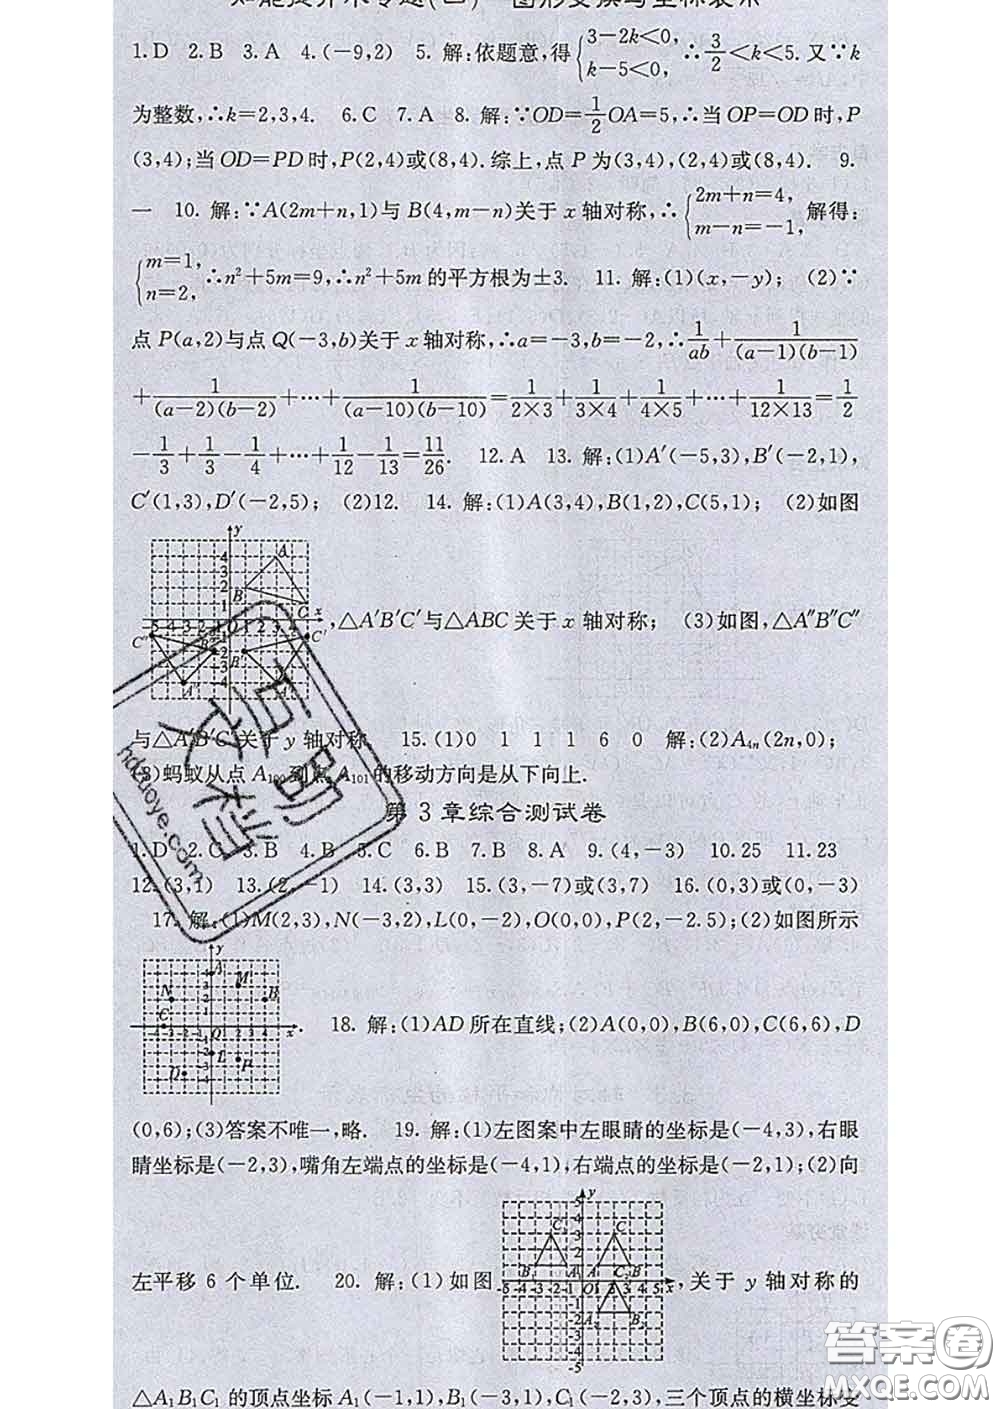 1.D 2.B 3.A 4.(-9,2) 5. 解:依题意,得{3-2k<0, k-5<0, ∴3/2<k<5.又∵k
为整数,∴k=2,3,4. 6.C 7.A 8. 解:∵OD=1/2OA=5,∴当OP=OD时,P
(3,4);当OD=PD时,P(2,4)或(8,4).综上,点P为(3,4),(2,4)或(8,4). 9.
一 10. 解:∵A(2m+n,1)与B(4,m-n)关于x轴对称,∴{2m+n=4, m-n=-1, 解得:
{m=1, n=2, ∴n²+5m=9,∴n²+5m的平方根为±3. 11. 解:(1)(x,-y); (2)∵
点P(a,2)与点Q(-3,b)关于x轴对称,∴a=-3,b=-2,∴1/ab+1/(a-1)(b-1)
+1/(a-2)(b-2)+…+1/(a-10)(b-10)=1/2×3+1/3×4+1/4×5+…+1/12×13=1/2
-1/3+1/3-1/4+…+1/12-1/13=11/26. 12.A 13. 解:(1)A′(-5,3),B′(-2,1),
C′(1,3),D′(-2,5); (2)12. 14. 解:(1)A(3,4),B(1,2),C(5,1); (2)如图
,△A′B′C′与△ABC关于x轴对称; (3)如图,△A″B″C″
与△A′B′C′关于y轴对称. 15.(1)0 1 1 1 6 0 解:(2)A4n(2n,0);
(3)蚂蚁从点A100到点A101的移动方向是从下向上.
第3章综合测试卷
1.D 2.C 3.B 4.B 5.C 6.B 7.B 8.A 9.(4,-3) 10.25 11.23
12.(3,1) 13.(2,-1) 14.(3,3) 15.(3,-7)或(3,7) 16.(0,3)或(0,-3)
17. 解:(1)M(2,3),N(-3,2),L(0,-2),O(0,0),P(2,-2.5);(2)如图所示
. 18. 解:(1)AD所在直线;(2)A(0,0),B(6,0),C(6,6),D
(0,6);(3)答案不唯一,略. 19. 解:(1)左图案中左眼睛的坐标是(-4,3),右眼
睛坐标是(-2,3),嘴角左端点的坐标是(-4,1),右端点的坐标是(-2,1);(2)向
左平移6个单位. 20. 解:(1)如图
,关于y轴对称的
△A1B1C1的顶点坐标A1(-1,1),B1(-3,1),C1(-2,3),三个顶点的横坐标变
hdzuoye.com
答案圈
MXQE.COM